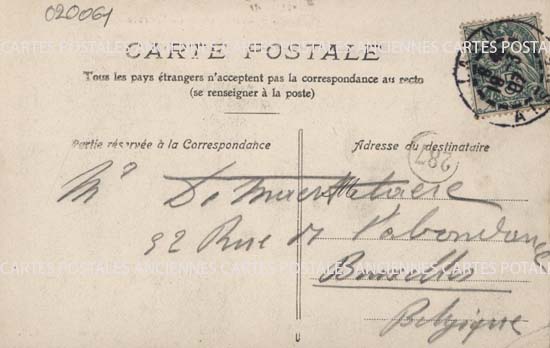 020061
CARTES POSTALES ANCIENNES CARTES POSTALES ANCIENNES CARTES POSTALES
CARTE POSTALE
Tous les pays étrangers n'acceptent pas la correspondance au recto
(se renseigner à la poste)
Partie réservée à la Correspondance
Adresse du destinataire
287
Mr De
92 Rue de l'abondance
CARTES POSTALES ANCIENNES CARTES POSTALES ANCIENNES CARTES POSTALES
Bruxelles
Belgique